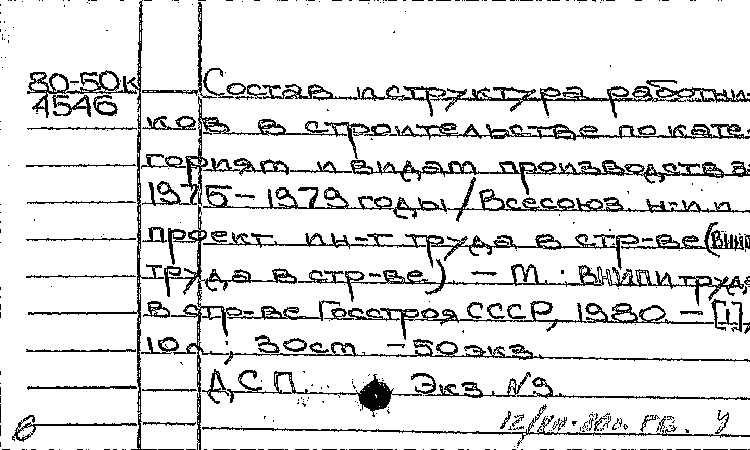 80-50к
4546
Состав и структура работни-
ков в строительстве по кате-
гориям и видам производств за
1975-1979 годы / Всесоюз. н.-и. и
проект. ин-т труда в стр-ве (ВНИПИ
труда в стр-ве) - М.: ВНИПИ труда
в стр-ве Госстроя СССР, 1980. - [1],
10 л.; 30 см. - 50 экз.
ДСП. Экз. № 9.
в